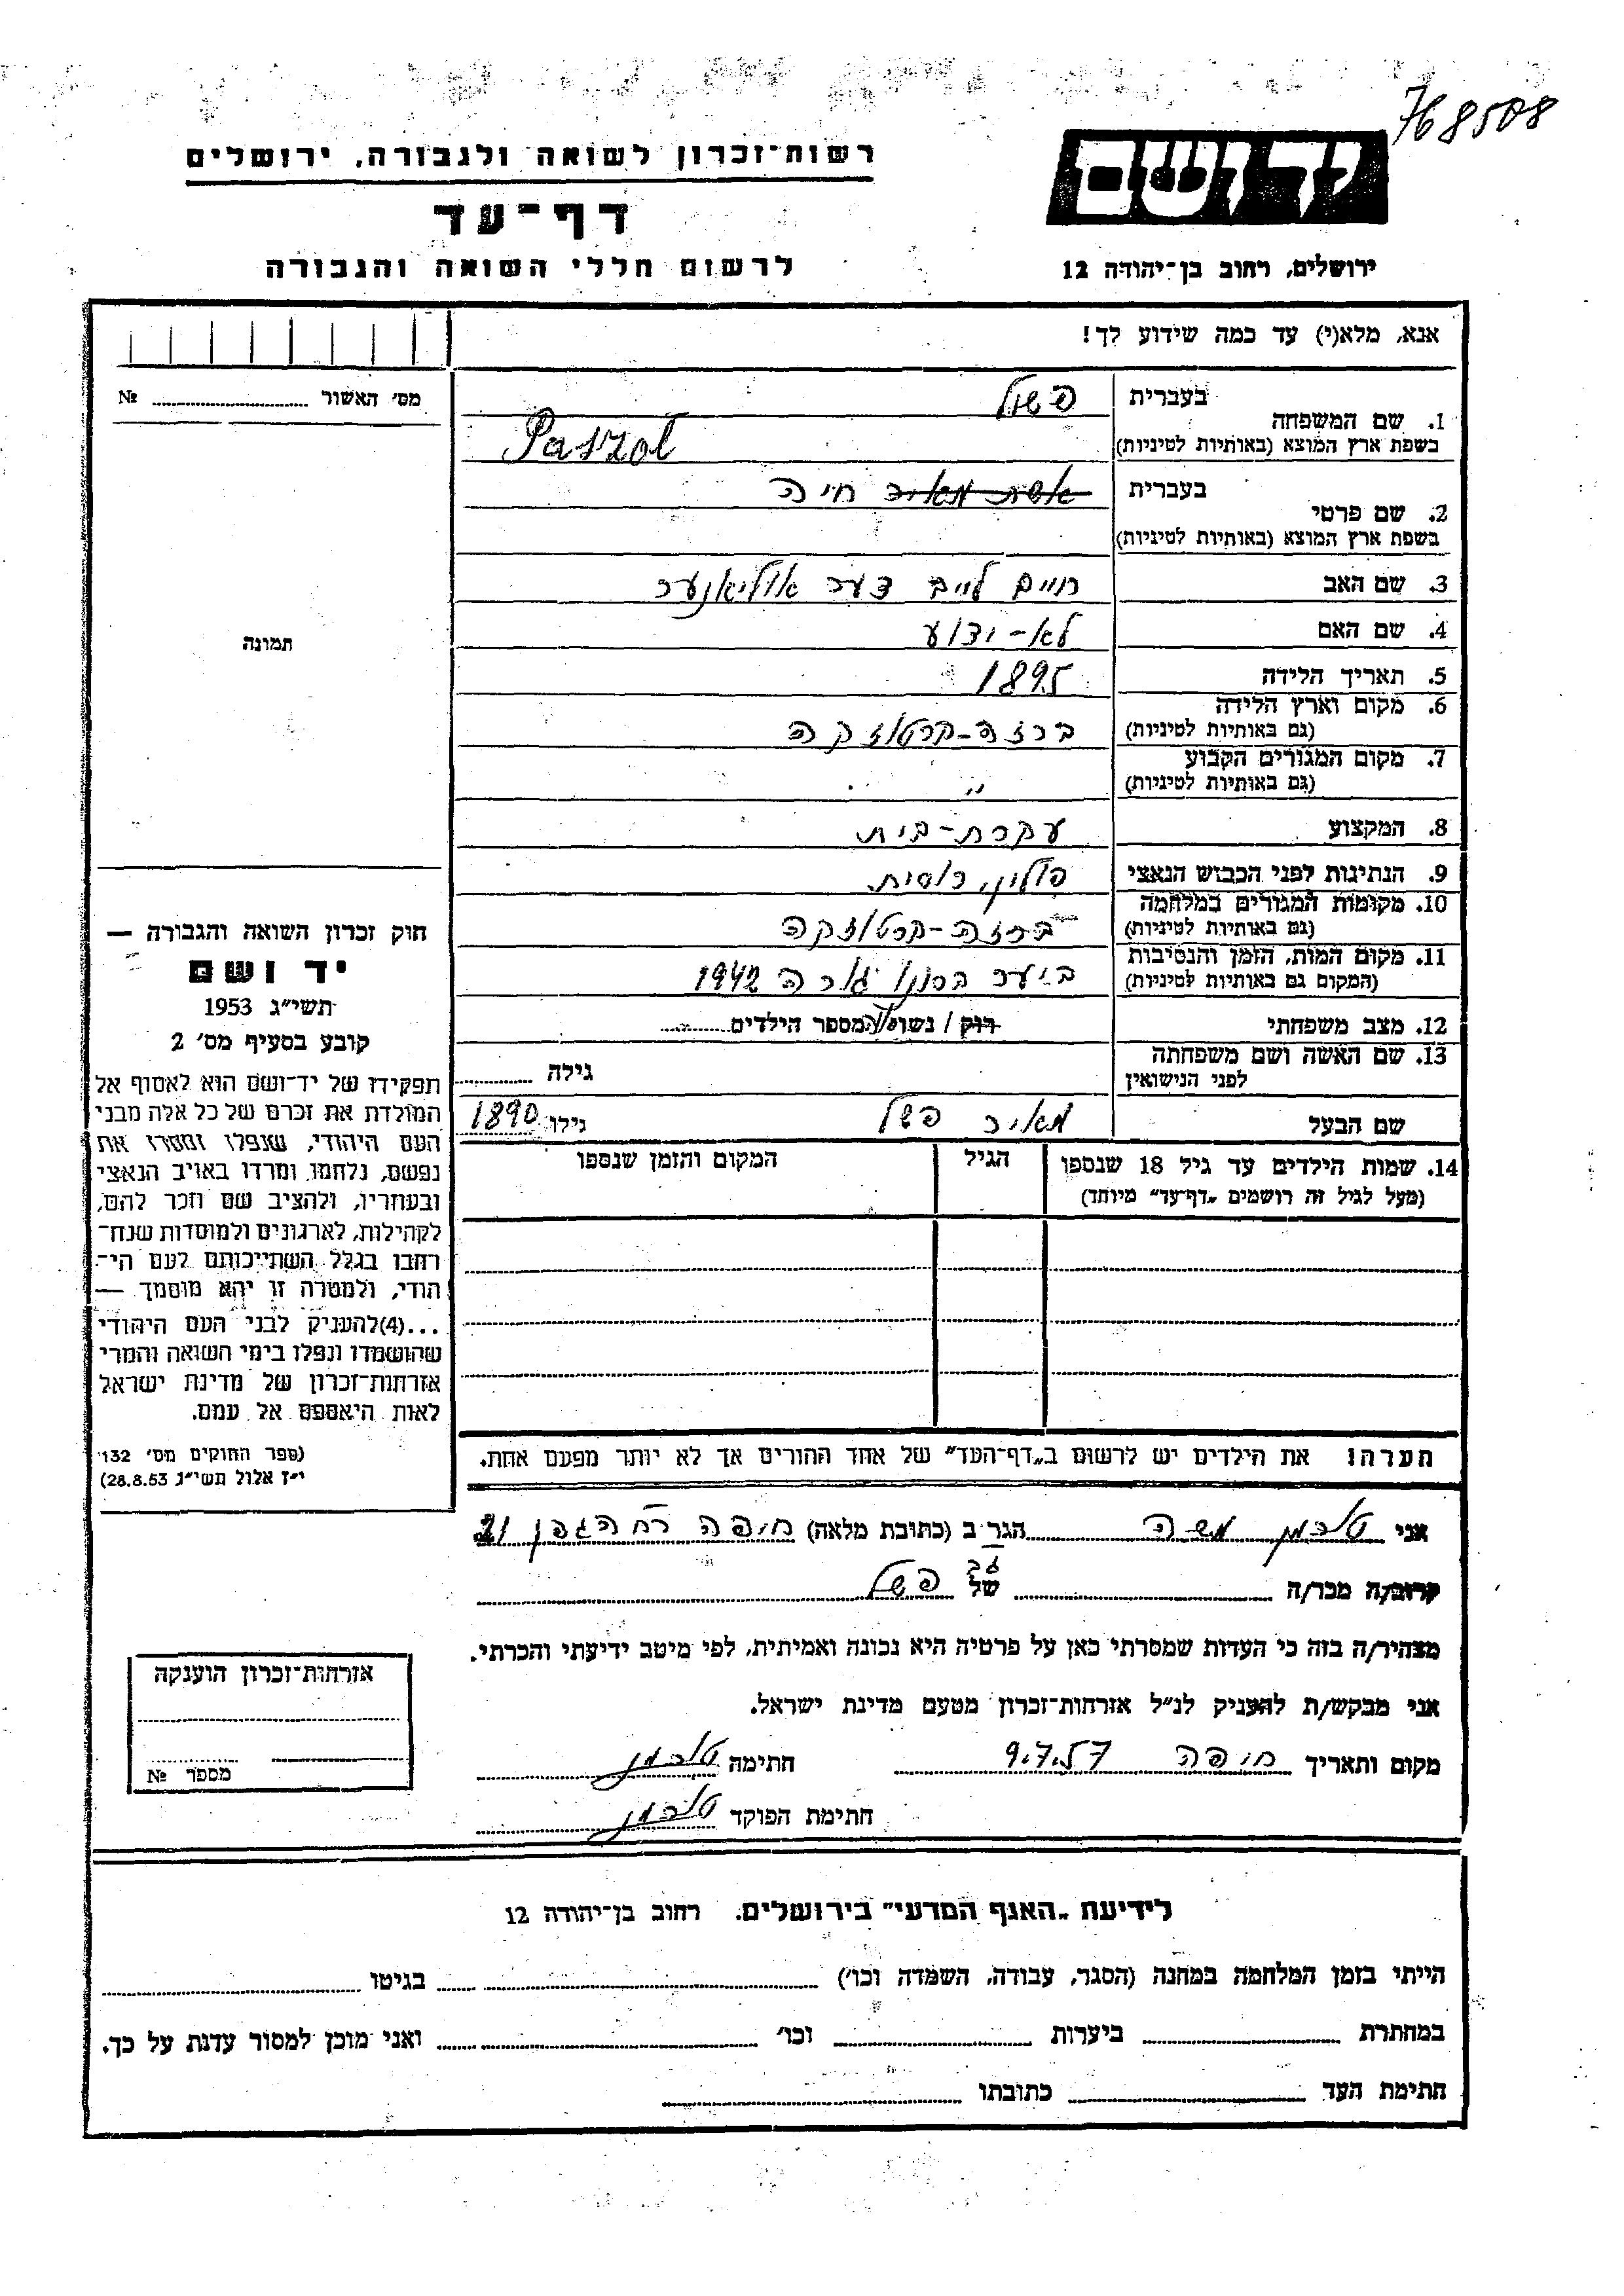 768508
יד ושם
רשות־זכרון לשואה ולגבורה, ירושלים
דף־עד
ירושלים, רחוב בן־יהודה 12
לרשום חללי השואה והגבורה
אנא, מלא(י) עד כמה שידוע לך!
מס' האשור № ............
תמונה
חוק זכרון השואה והגבורה —
יד ושם
תשי״ג 1953
קובע בסעיף מס' 2
תפקידו של יד־ושם הוא לאסוף אל
המולדת את זכרם של כל אלה מבני
העם היהודי, שנפלו ומסרו את
נפשם, נלחמו ומרדו באויב הנאצי
ובעוזריו, ולהציב שם וזכר להם,
לקהילות, לארגונים ולמוסדות שנח־
רבו בגלל השתייכותם לעם הי־
הודי, ולמטרה זו יהא מוסמך —
...(4)להעניק לבני העם היהודי
שהושמדו ונפלו בימי השואה והמרי
אזרחות־זכרון של מדינת ישראל
לאות היאספם אל עמם.
(ספר החוקים מס' 132
י״ז אלול תשי״ג 28.8.53)
1. שם המשפחה בעברית פשול
בשפת ארץ המוצא (באותיות לטיניות) Paszol
2. שם פרטי בעברית אשת מאיר חיה
בשפת ארץ המוצא (באותיות לטיניות)
3. שם האב חיים לייב דער
4. שם האם לא-ידוע
5. תאריך הלידה 1895
6. מקום וארץ הלידה ברזה-קרטוזקה
(גם באותיות לטיניות)
7. מקום המגורים הקבוע ״
(גם באותיות לטיניות)
8. המקצוע עקרת-בית
9. הנתינות לפני הכבוש הנאצי פולין, רוסית
10. מקומות המגורים במלחמה ברזה-קרטוזקה
(גם באותיות לטיניות)
11. מקום המות, הזמן והנסיבות ביער ברונו גורה 1942
(המקום גם באותיות לטיניות)
12. מצב משפחתי רוק / נשוי/אה מספר הילדים............
13. שם האשה ושם משפחתה גילה ............
לפני הנישואין
שם הבעל מאיר פשול גילו 1890
14. שמות הילדים עד גיל 18 שנספו הגיל המקום והזמן שנספו
(מעל לגיל זה רושמים „דף־עד״ מיוחד)
הערה: את הילדים יש לרשום ב„דף־העד״ של אחד ההורים אך לא יותר מפעם אחת.
אני טוכמן משה הגר ב (כתובת מלאה) חיפה רח הגפן 21
קרוב/ה מכר/ה ............ של גב פשול
מצהיר/ה בזה כי העדות שמסרתי כאן על פרטיה היא נכונה ואמיתית, לפי מיטב ידיעתי והכרתי.
אני מבקש/ת להעניק לנ״ל אזרחות־זכרון מטעם מדינת ישראל.
מקום ותאריך חיפה 9.7.57 חתימה טוכמן
חתימת הפוקד טוכמן
אזרחות־זכרון הוענקה
מספר №
לידיעת „האגף המדעי״ בירושלים. רחוב בן־יהודה 12
הייתי בזמן המלחמה במחנה (הסגר, עבודה, השמדה וכו') ............ בגיטו ............
במחתרת ............ ביערות ............ וכו' ............ ואני מוכן למסור עדות על כך.
חתימת העד ............ כתובתו ............